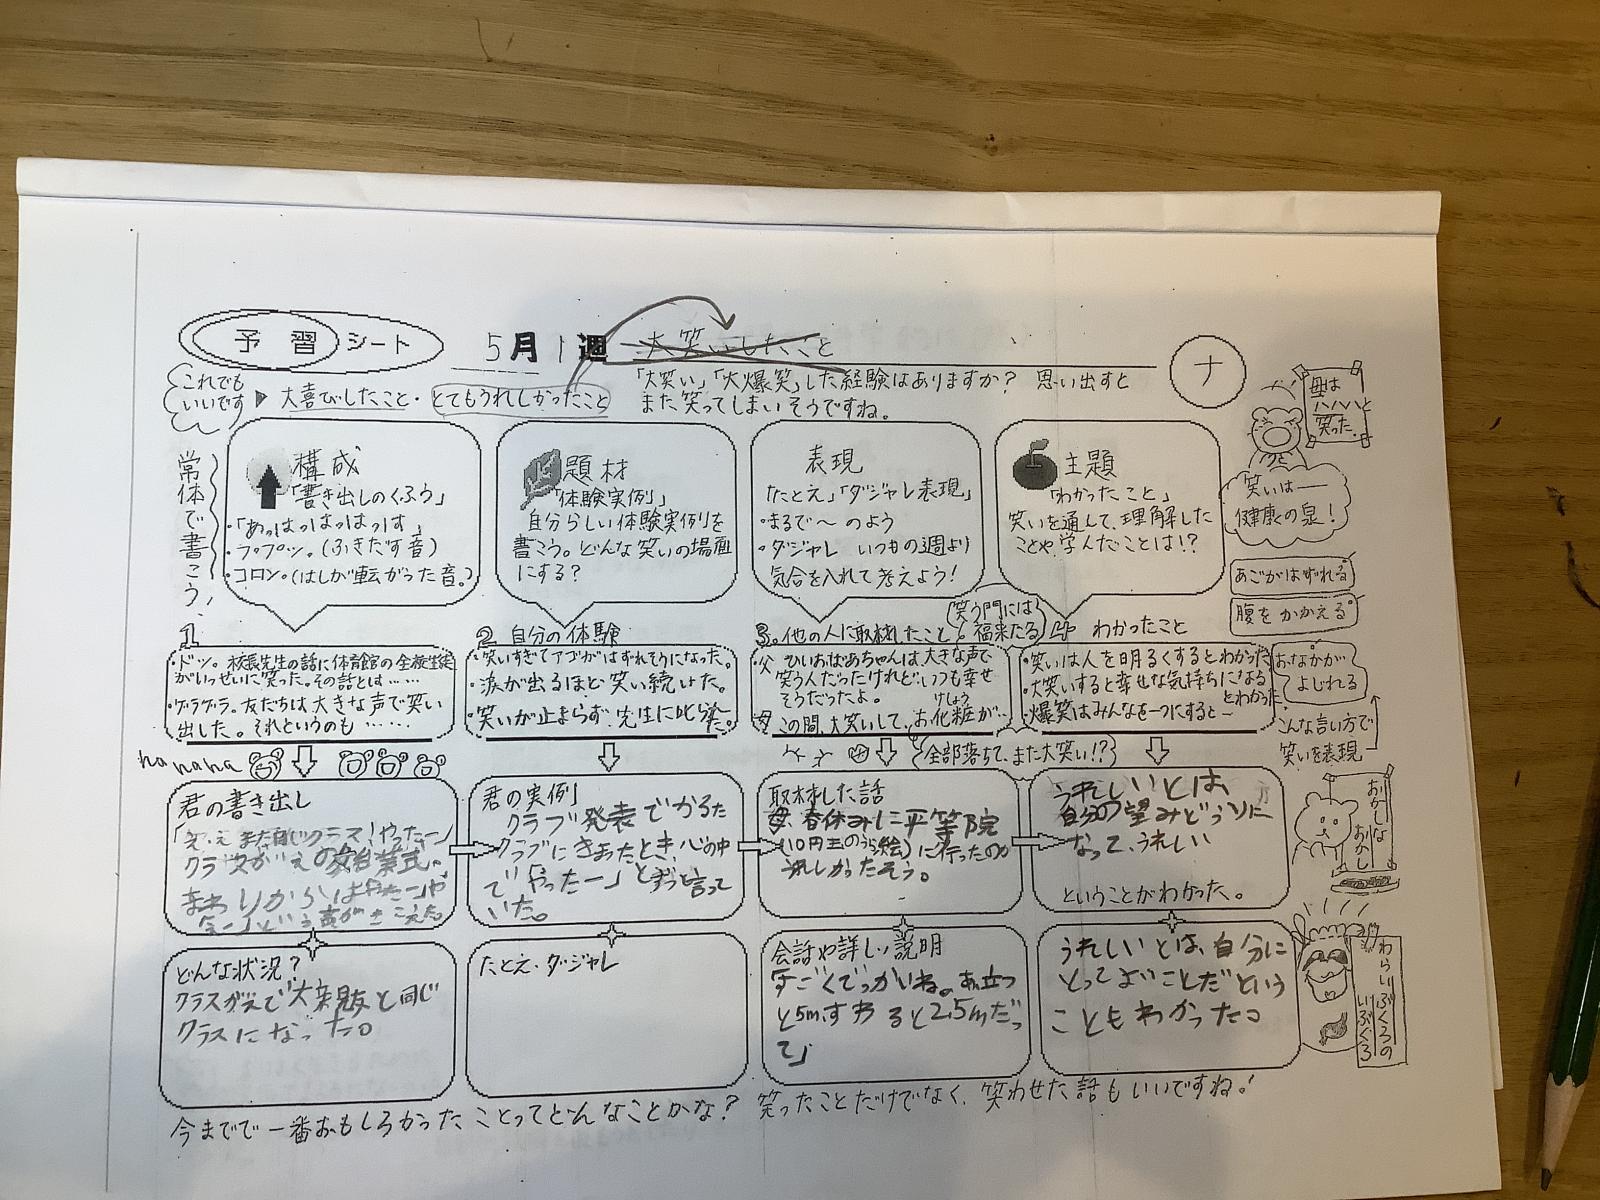 予習シート
5月1週 大笑いしたこと
ナ
これでも
いいです
▶大喜びしたこと・とてもうれしかったこと
「大笑い」「大爆笑」した経験はありますか? 思い出すと
また笑ってしまいそうですね。
母は
ハハハと
笑った。
常体で書こう
構成
「書き出しのくふう」
・「あっはっはっはっす」
・ラププッ。(ふきだす音)
・コロン。(はしが転がった音。)
題材
「体験実例」
自分らしい体験実例を
書こう。どんな笑いの場面
にする?
表現
たとえ」「ダジャレ表現」
・まるで〜のよう
・ダジャレ いつもの週より
気合を入れて考えよう!
主題
「わかったこと」
笑いを通して、理解した
ことや学んだことは!?
笑いは―
健康の泉!
あごがはずれる
腹をかかえる
1
・ドッ。校長先生の話に体育館の全校生徒
がいっせいに笑った。その話とは……
・ゲラゲラ。友だちは大きな声で笑い
出した。それというのも……
2 自分の体験
・笑いすぎてアゴがはずれそうになった。
・涙が出るほど笑い続けた。
・笑いが止まらず先生に叱られた。
3。他の人に取材したこと。
笑う門には
福来たる
・父 ひいおばあちゃんは、大きな声で
笑う人だったけれど、いつも幸せ
そうだったよ。
けしょう
母 この間、大笑いして、お化粧が…
全部落ちて、また大笑い!?
4 わかったこと
・笑いは人を明るくするとわかった
・大笑いすると幸せな気持ちになる
とわかった
・爆笑はみんなを一つにすると―
おなかが
よじれる
こんな言い方で
笑いを表現
hahaha
君の書き出し
「え・えまた同じクラス!やったー」
クラスがえの始業式。
まわりからは「やったー」や、
「えー」という声がきこえた。
君の実例
クラブ発表でかるた
クラブにきまったとき、心の中
で「やったー」とずっと言って
いた。
取材した話
母、春休みに平等院
(10円玉のうら絵)に行ったのが
うれしかったそう。
うれしいとは、
自分の望みどうりに
なって、うれしい
ということがわかった。
おかしな
おかし
どんな状況?
クラスがえで大親友と同じ
クラスになった。
たとえ・ダジャレ
会話や詳しい説明
「すごくでっかいね。あ、立つ
と5m、すわると2.5mだっ
て」
うれしいとは、自分に
とってよいことだという
こともわかった。
わらいぶくろの
いぶくろ
今までで一番おもしろかったことってどんなことかな? 笑ったことだけでなく、笑わせた話もいいですね!